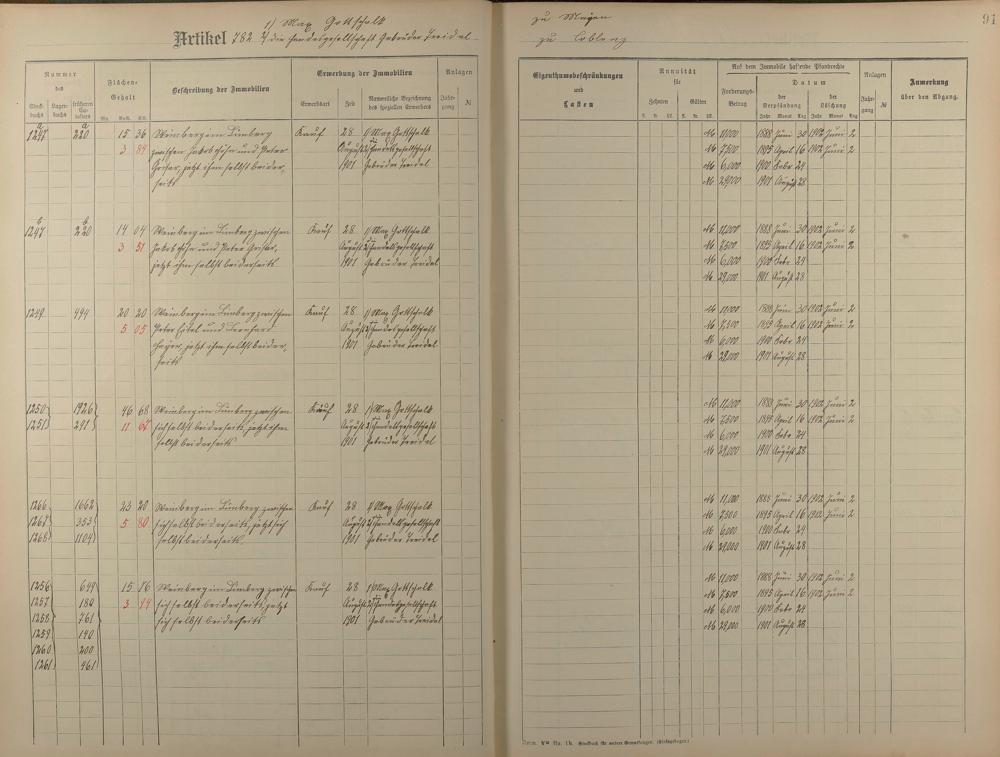 1) Max Gottschalk
Artikel 782 2) die Handelsgesellschaft Gebrüder Treidel
Nummer
des
Stockbuchs
Lagerbuchs
früheren Catasters
Flächen-
Gehalt
Mg. Ruth. Sch.
Beschreibung der Immobilien
Erwerbung der Immobilien
Erwerbsart
Zeit
Namentliche Bezeichnung
des speziellen Erwerbers
Anlagen
Jahrgang
№
1247 a 220 a 15 36 Weinberg im Limberg Kauf 28 1) Max Gottschalk
3 84 zwischen Jakob Höhn und Peter August 2) die Handelsgesellschaft
Geiser, jetzt ihm selbst beider- 1901 Gebrüder Treidel
seits
1247 b 220 b 14 04 Weinberg im Limberg zwischen Kauf 28 1) Max Gottschalk
3 51 Jakob Höhn und Peter Geiser, August 2) Handelsgesellschaft
jetzt ihm selbst beiderseits 1901 Gebrüder Treidel
1249 494 20 20 Weinberg im Limberg zwischen Kauf 28 1) Max Gottschalk
5 05 Peter Eitel und Bernhard August 2) Handelsgesellschaft
jetzt ihm selbst beider- 1901 Gebrüder Treidel
seits
1250 1926 46 68 Weinberg im Limberg zwischen Kauf 28 1) Max Gottschalk
1251 291 11 67 sich selbst beiderseits, jetzt ihm August 2) Handelsgesellschaft
selbst beiderseits 1901 Gebrüder Treidel
1266 1662 23 20 Weinberg im Limberg zwischen Kauf 28 1) Max Gottschalk
1267 353 5 80 sich selbst beiderseits, jetzt sich August 2) Handelsgesellschaft
1268 1104 selbst beiderseits 1901 Gebrüder Treidel
1256 649 15 76 Weinberg im Limberg zwischen Kauf 28 1) Max Gottschalk
1257 184 3 94 sich selbst beiderseits, jetzt August 2) Handelsgesellschaft
1258 761 sich selbst beiderseits 1901 Gebrüder Treidel
1259 190
1260 200
1261 461
zu Mayen
zu Coblenz
91
Eigenthumsbeschränkungen
und
Lasten
Annuität
für
Zehnten
Gülten
Auf dem Immobile haftende Pfandrechte
Forderungs-
Betrag
Datum
der
Verpfändung
der
Löschung
Jahr Monat Tag Jahr Monat Tag
Anlagen
Jahrgang
№
Anmerkung
über den Abgang.
M 11,000 1888 Juni 30 1902 Juni 2
M 7,500 1895 April 16 1902 Juni 2
M 6,000 1900 Febr 24
M 29,000 1901 August 28
M 11,000 1888 Juni 30 1902 Juni 2
M 7,500 1895 April 16 1902 Juni 2
M 6,000 1900 Febr 24
M 29,000 1901 August 28
M 11,000 1888 Juni 30 1902 Juni 2
M 7,500 1895 April 16 1902 Juni 2
M 6,000 1900 Febr 24
M 29,000 1901 August 28
M 11,000 1888 Juni 30 1902 Juni 2
M 7,500 1895 April 16 1902 Juni 2
M 6,000 1900 Febr 24
M 29,000 1901 August 28
M 11,000 1888 Juni 30 1902 Juni 2
M 7,500 1895 April 16 1902 Juni 2
M 6,000 1900 Febr 24
M 29,000 1901 August 28
M 11,000 1888 Juni 30 1902 Juni 2
M 7,500 1895 April 16 1902 Juni 2
M 6,000 1900 Febr 24
M 29,000 1901 August 28